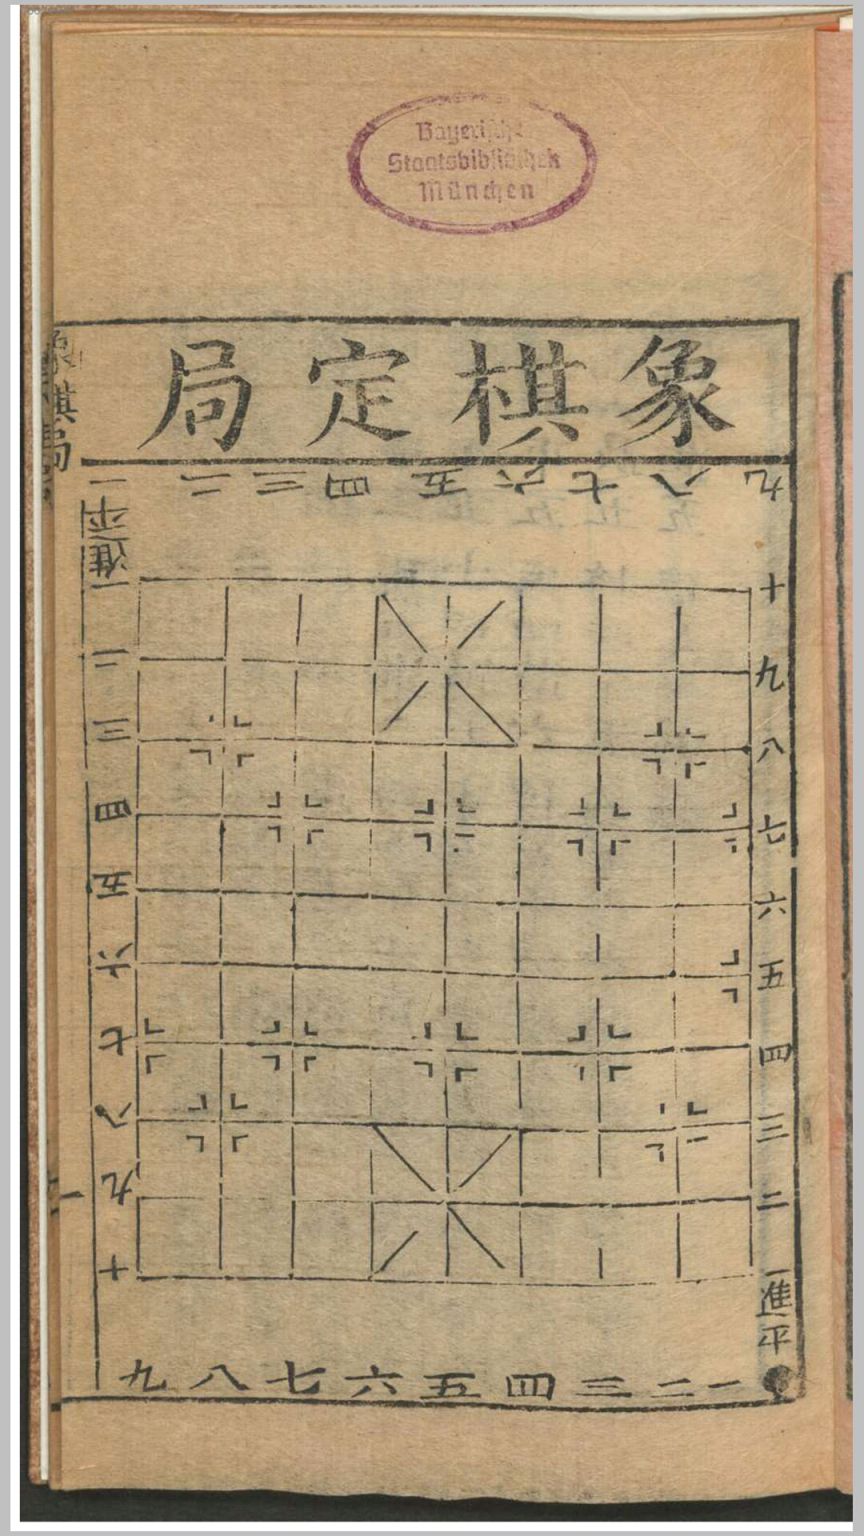 Bayerische
Staatsbibliothek
München
象棋定局
象棋局
九八七六五四三二一
平
進
一
二
三
四
五
六
七
八
九
十
十
九
八
七
六
五
四
三
二
一
進
平
一二三四五六七八九